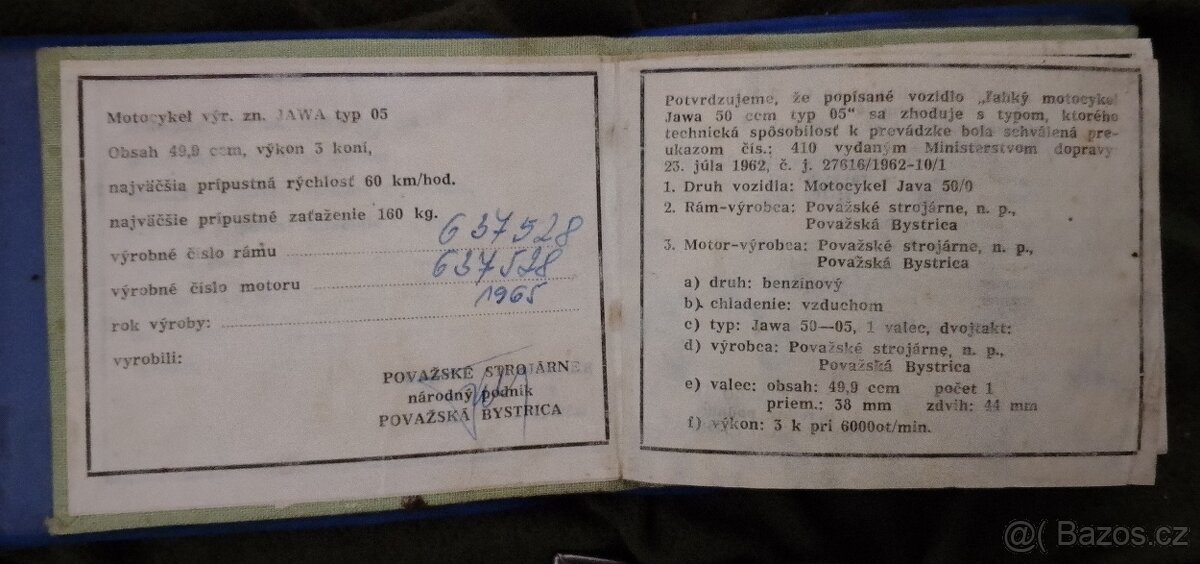 Motocykel výr. zn. JAWA typ 05
Obsah 49,9 ccm, výkon 3 koní,
najväčšia prípustná rýchlosť 60 km/hod.
najväčšie prípustné zaťaženie 160 kg.
výrobné číslo rámu 637528
výrobné číslo motoru 637528
rok výroby: 1965
vyrobili:
POVAŽSKÉ STROJÁRN
národný podnik
POVAŽSKÁ BYSTRICA
Potvrdzujeme, že popísané vozidlo „ľahký motocykel
Jawa 50 ccm typ 05“ sa zhoduje s typom, ktorého
technická spôsobilosť k prevádzke bola schválená pre-
ukazom čís.: 410 vydaným Ministerstvom dopravy
23. júla 1962, č. j. 27616/1962-10/1
1. Druh vozidla: Motocykel Java 50/0
2. Rám-výrobca: Považské strojárne, n. p.,
Považská Bystrica
3. Motor-výrobca: Považské strojárne, n. p.,
Považská Bystrica
a) druh: benzínový
b) chladenie: vzduchom
c) typ: Jawa 50—05, 1 valec, dvojtakt:
d) výrobca: Považské strojárne, n. p.,
Považská Bystrica
e) valec: obsah: 49,9 ccm počet 1
priem.: 38 mm zdvih: 44 mm
f) výkon: 3 k pri 6000ot/min.
Bazos.cz